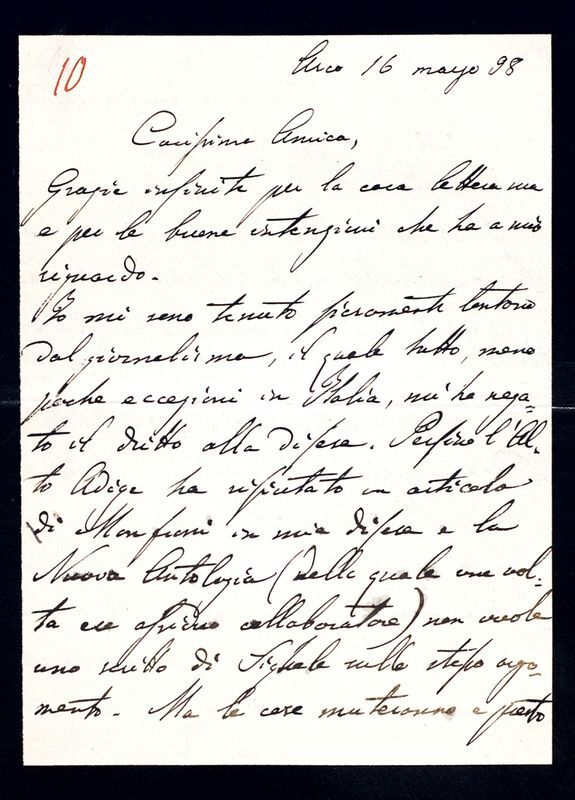 10
Arco 16 marzo 98
Carissima Amica,
Grazie infinite per la cara lettera sua
e per le buone intenzioni che ha a mio
riguardo.
Io mi sono tenuto fieramente lontano
dal giornalismo, il quale tutto, meno
poche eccezioni in Italia, mi ha nega-
to il dritto alla difesa. Perfino l'Al-
to Adige ha rifiutato un articolo
di Monfroni in mia difesa e la
Nuova Antologia (della quale una vol-
ta ero assiduo collaboratore) non vuole
uno scritto di Sighele sullo stesso argo-
mento. Ma le cose muteranno e presto